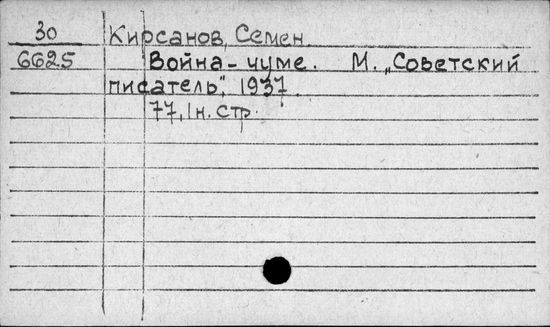 30 Кирсанов, Семен.
6625 Война - чуме. М. „Советский
писатель", 1937.
77, 1 н. стр.